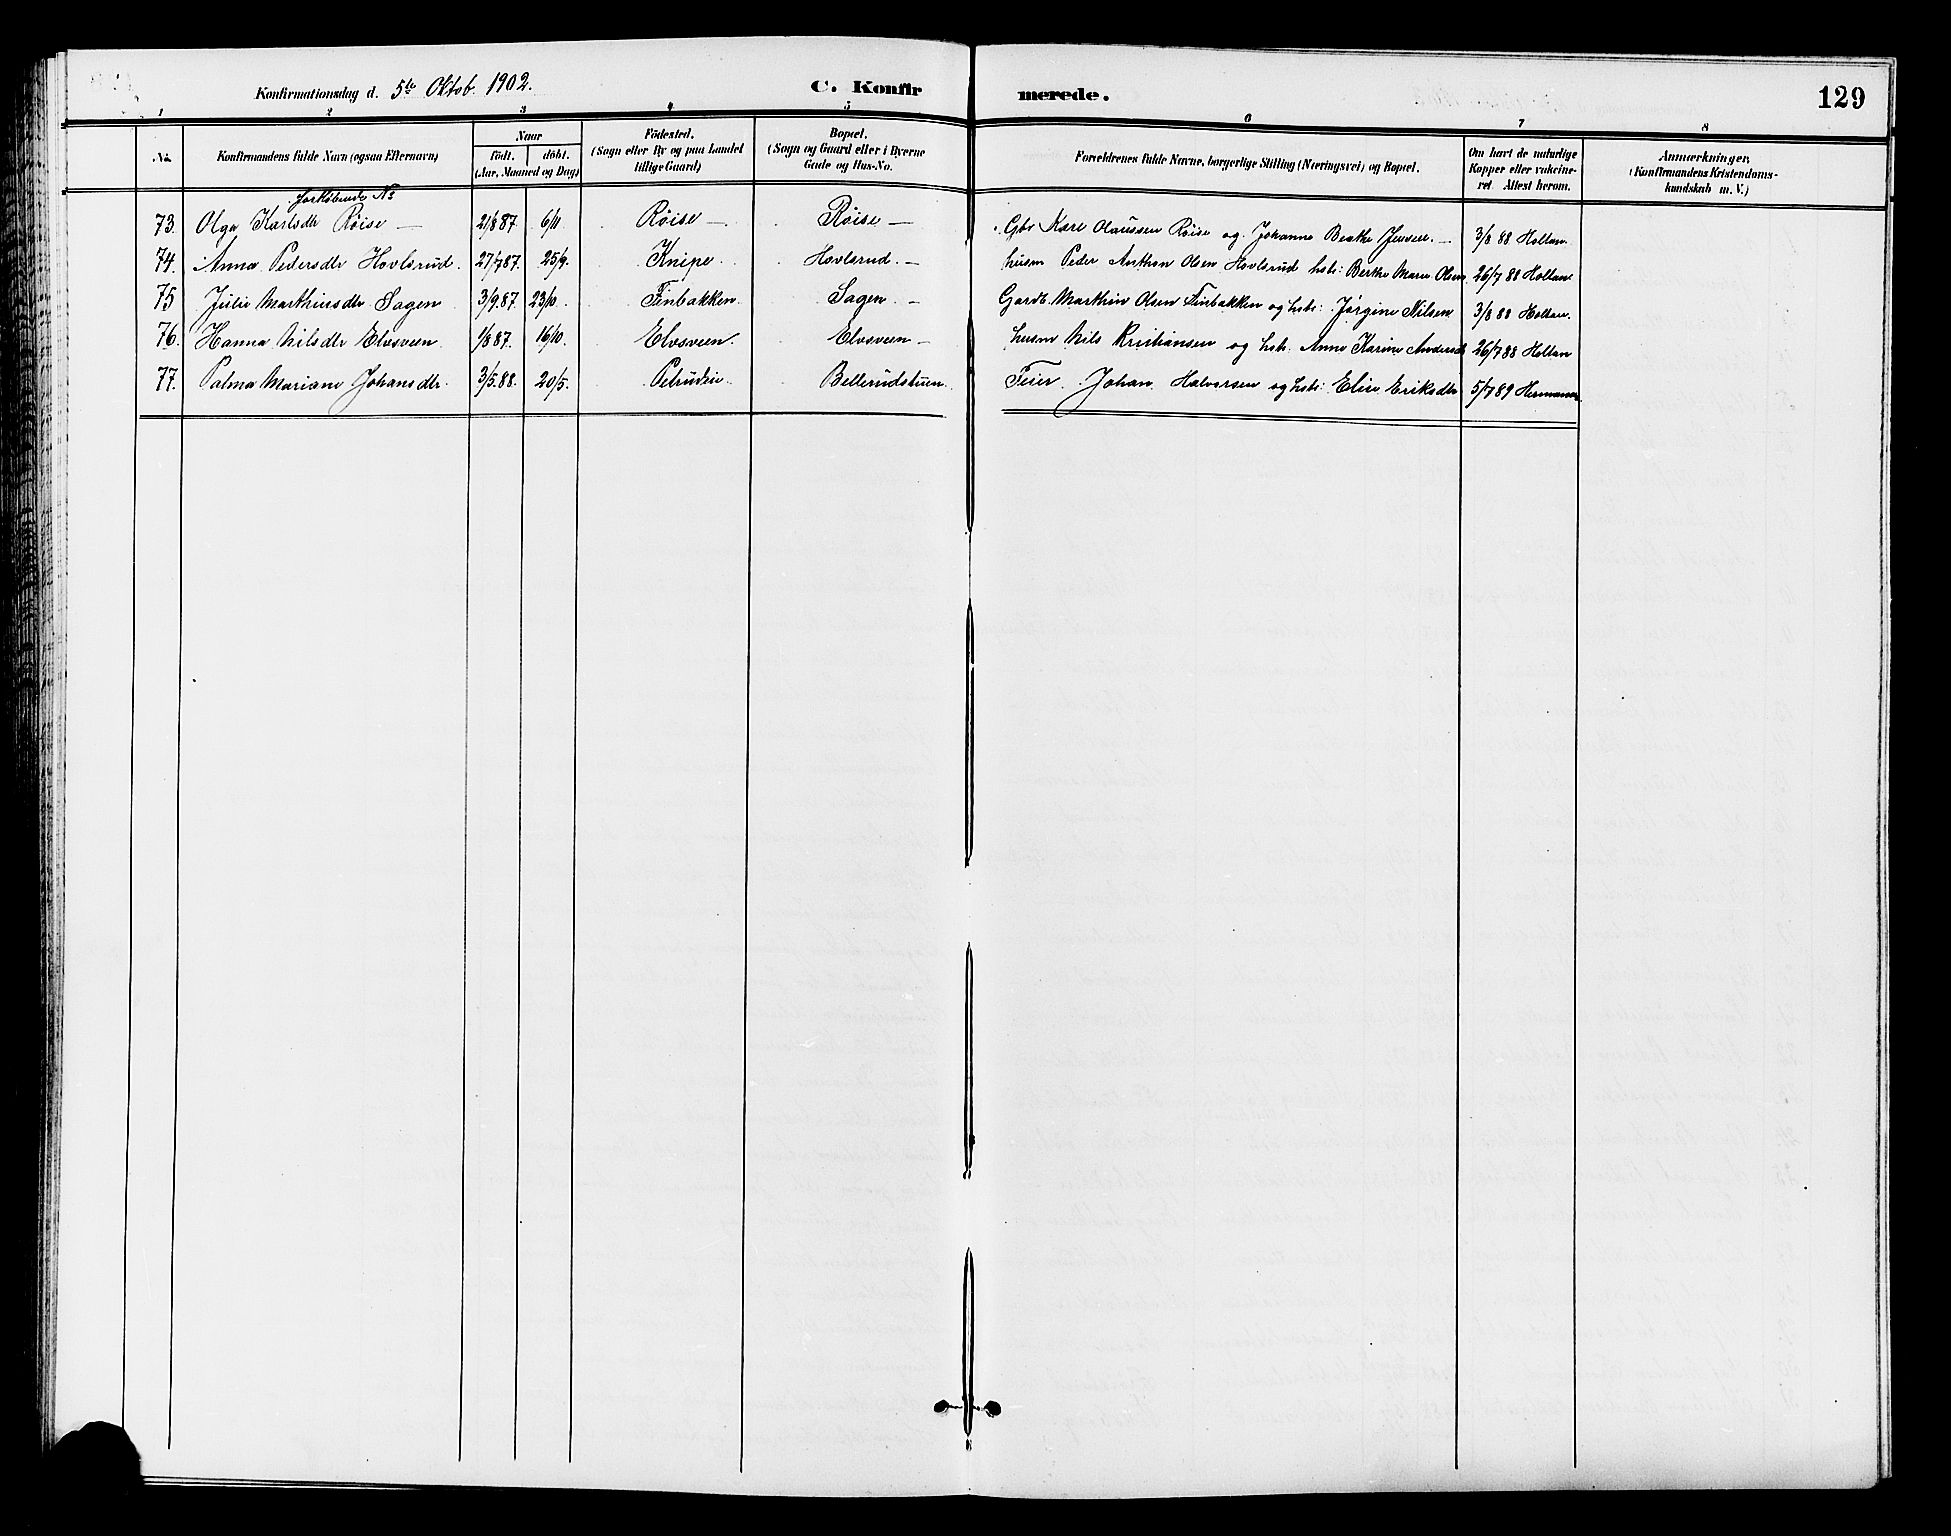 Konfirmationsdag d. 5te Oktob. 1902. C. Konfirmerede. 129
1 2 3 4 5 6 7 8
No. Konfirmandens fulde Navn (ogsaa Efternavn)
Naar
født. døbt.
(Aar, Maaned og Dag)
Födested.
(Sogn eller By og paa Landet
tillige Gaard)
Bopæl.
(Sogn og Gaard eller i Byerne
Gade og Hus-No.
Forældrenes fulde Navne, borgerlige Stilling (Næringsvei) og Bopæl.
Om havt de naturlige
Kopper eller vakcine-
ret. Attest herom.
Anmærkninger,
(Konfirmandens Kristendoms-
kundskab m. V.)
Forløbende No
73. Olga Karlsdtr Röise — 21/8 87. 6/11 Röise — Röise — Gbr Kare Olaussen Röise og Johanne Berthe Jensen. — 3/8 88 Holtan.
74. Anna Pedersdtr Hovlsrud. 27/7 87. 25/9. Knipe. Hovlsrud. — husm Peder Anthon Olsen Hovlsrud hstr: Berthe Marie Olsen 26/7 88 Holtan
75 Julie Marthinsdtr Sagen 3/9. 87. 23/10. Finbakken. Sagen — Gardb. Marthin Olsen Finbakken og hstr: Jørgine Nilsen 3/8 88 Holtan.
76. Hanna Nilsdtr Elvsveen. 1/8 87. 16/10. Elvsveen. Elvsveen — husm Nils Kristiansen og hstr. Anne Karine Andersdt 26/7 88 Holtan
77. Palma Mariane Johansdtr. 3/5. 88. 20/5. Bellerudstuen. Feier. Johan Halvorsen og hstr: Elise Eriksdtr 5/7 89 Hermansen